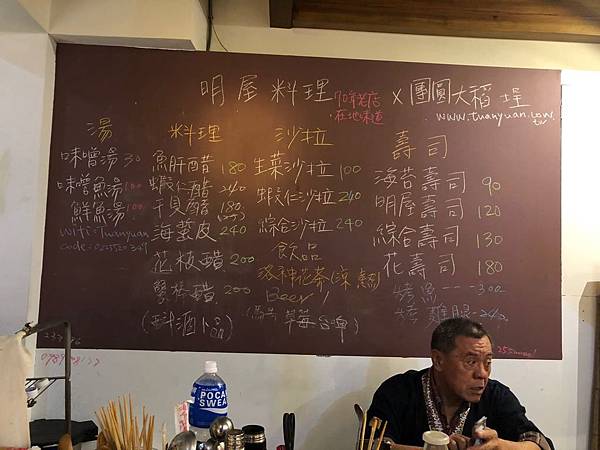 明屋料理 70年老店 x 團圓大稻埕
在地味道
www.tuanyuan.com.tw
湯
味噌湯 30
味噌魚湯 100
鮮魚湯 100
Wifi: Tuanyuan
料理
魚肝醋 180
蝦仁醋 240
干貝醋 180
海蜇皮 240
花枝醋 200
蟹棒醋 200
沙拉
生菜沙拉 100
蝦仁沙拉 240
綜合沙拉 240
飲品
洛神花茶(涼、熱)
Beer!
壽司
海苔壽司 90
明屋壽司 120
綜合壽司 130
花壽司 180
烤魚---300
烤雞腿-240
POCA
SWEA